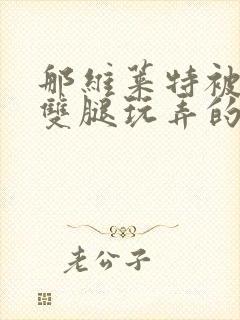 那維萊特被
雙腿玩弄的
老公子